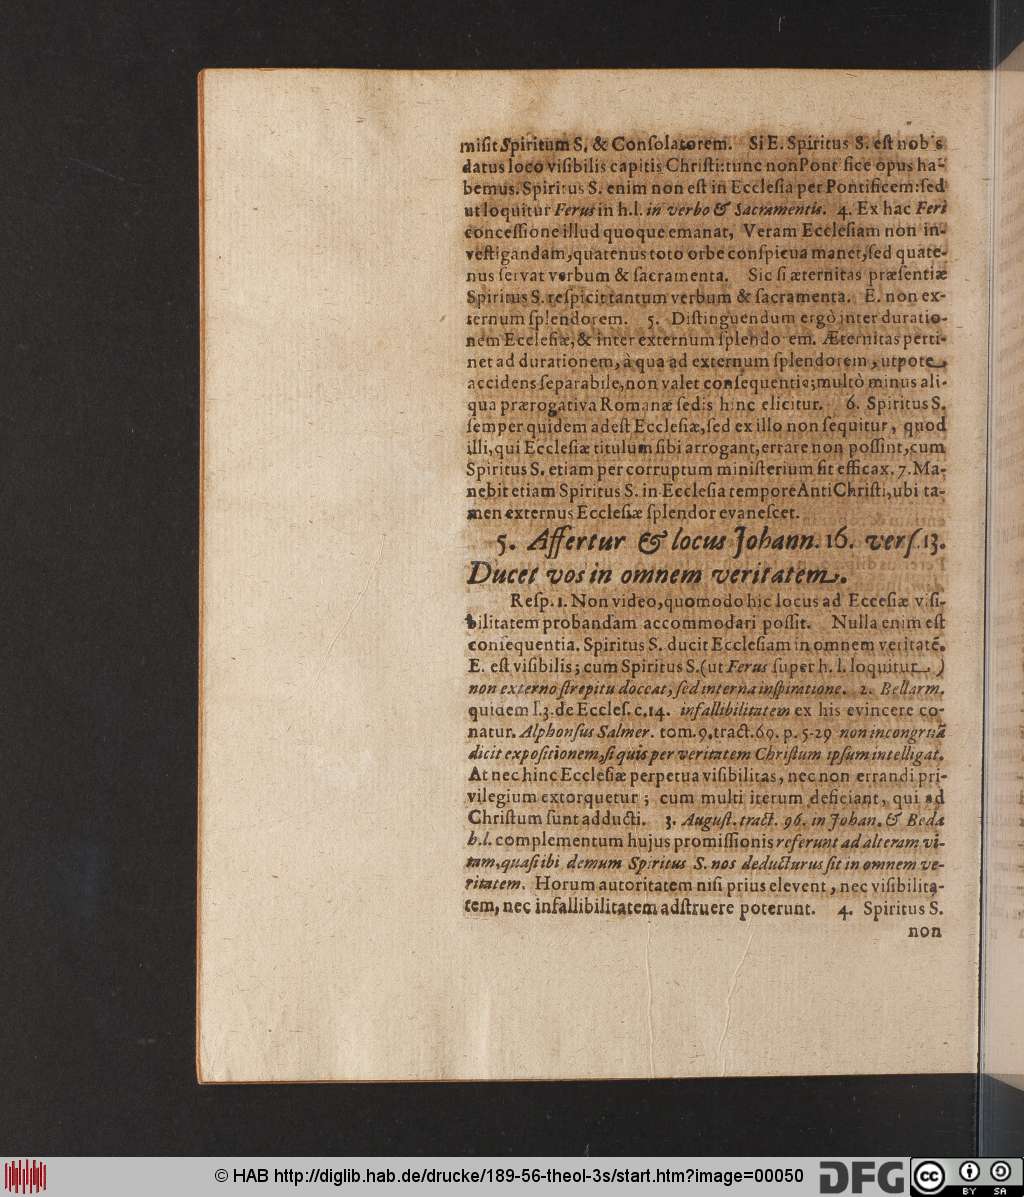 miſit Spiritum S. & Conſolatorem. Si E. Spiritus S. eſt nob s
datus loco viſibilis capitis Chriſti: tunc non Pont fice opus ha-
bemus. Spiritus S. enim non eſt in Eccleſia per Pontificem: ſed
ut loquitur Ferus in h. l. in verbo & Sacramentis. 4. Ex hac Feri
conceſſione illud quoque emanat, Veram Eccleſiam non in-
veſtigandam, quatenus toto orbe conſpicua manet, ſed quate-
nus ſervat verbum & ſacramenta. Sic ſi æternitas præſentiæ
Spiritus S. reſpicit tantum verbum & ſacramenta. E. non ex-
ternum ſplendorem. 5. Diſtinguendum ergò inter duratio-
nem Eccleſiæ, & inter externum ſplendo em. Æternitas perti-
net ad durationem, à qua ad externum ſplendorem, utpote,
accidens ſeparabile, non valet conſequentia; multò minus ali-
qua prærogativa Romanæ ſedis hinc elicitur. 6. Spiritus S.
ſemper quidem adeſt Eccleſiæ, ſed ex illo non ſequitur, quod
illi, qui Eccleſiæ titulum ſibi arrogant, errare non poſſint, cum
Spiritus S. etiam per corruptum miniſterium ſit efficax. 7. Ma-
nebit etiam Spiritus S. in Eccleſia tempore AntiChriſti, ubi ta-
men externus Eccleſiæ ſplendor evaneſcet.
5. Affertur & locus Johann. 16. verſ. 13.
Ducet vos in omnem veritatem.
Reſp. 1. Non video, quomodo hic locus ad Ecceſiæ viſi-
bilitatem probandam accommodari poſſit. Nulla enim eſt
conſequentia. Spiritus S. ducit Eccleſiam in omnem veritatē.
E. eſt viſibilis; cum Spiritus S. (ut Ferus ſuper h. l. loquitur )
non externo ſtrepitu doceat, ſed interna inſpiratione. 2. Bellarm.
quidem l. 3. de Eccleſ. c. 14. infallibilitatem ex his evincere co-
natur. Alphonſus Salmer. tom. 9. tract. 69. p. 529 non incongruā
dicit expoſitionem, ſi quis per veritatem Chriſtum ipſum intelligat.
At nec hinc Eccleſiæ perpetua viſibilitas, nec non errandi pri-
vilegium extorquetur; cum multi iterum deficiant, qui ad
Chriſtum ſunt adducti. 3. Auguſt. tract. 96. in Johan. & Beda
h. l. complementum hujus promiſſionis referunt ad alteram vi-
tam, quaſi ibi demum Spiritus S. nos deducturus ſit in omnem ve-
ritatem. Horum autoritatem niſi prius elevent, nec viſibilita-
tem, nec infallibilitatem adſtruere poterunt. 4. Spiritus S.
non
© HAB http://diglib.hab.de/drucke/189-56-theol-3s/start.htm?image=00050
DFG
cc BY SA